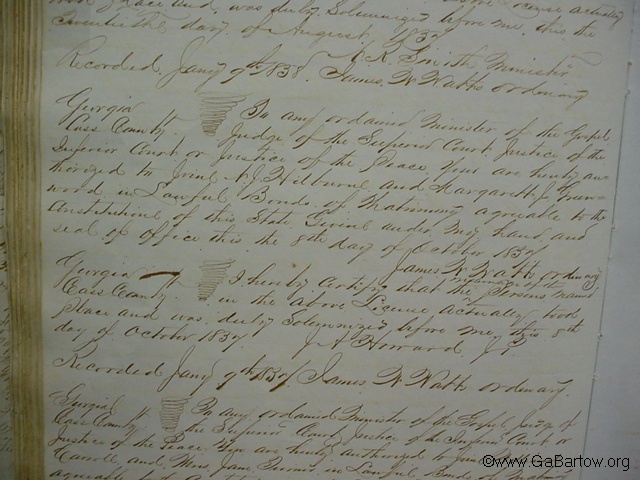 place and, was duly Solemnized before me, this the
twentieth day of August 1837
A. R. Smith Minister
Recorded Jany 9th 1838. James W Watts ordinary
Georgia
Cass County. To any ordained Minister of the Gospel
Judge of the Superior Court Justice of the
Inferior Court or Justice of the Peace, you are hereby au-
thorized to Join A J Wilburne and Margarett J. Green-
wood in Lawful Bonds of Matrimony agreeable to the
Constitution of this State Given under my hand and
seal of office this the 8th day of October 1837
James W Watts ordinary
Georgia
Cass County. I hereby certify that the marriage of the Persons named
in the above License, actually took
place and was duly Solemnized before me, this 8th
day of October 1837. J A Howard J P
Recorded Jany 9th 1838 James W Watts ordinary.
Georgia
Cass County To any ordained Minister of the Gospel, Judge of
the Superior Court, Justice of the Inferior Court or
Justice of the Peace, you are hereby authorized to Join
Carroll, and, Miss, Jane in Lawful Bonds of
agreeable
©www.GaBartow.org